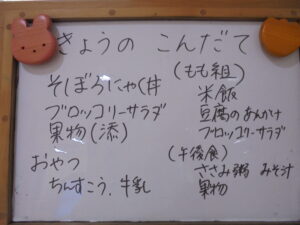 きょうの こんだて
そぼろにゃく丼
ブロッコリーサラダ
果物(添)
おやつ
ちんすこう、牛乳
(もも組)
米飯
豆腐のあんかけ
ブロッコリーサラダ
(午後食)
ささみ粥 みそ汁
果物